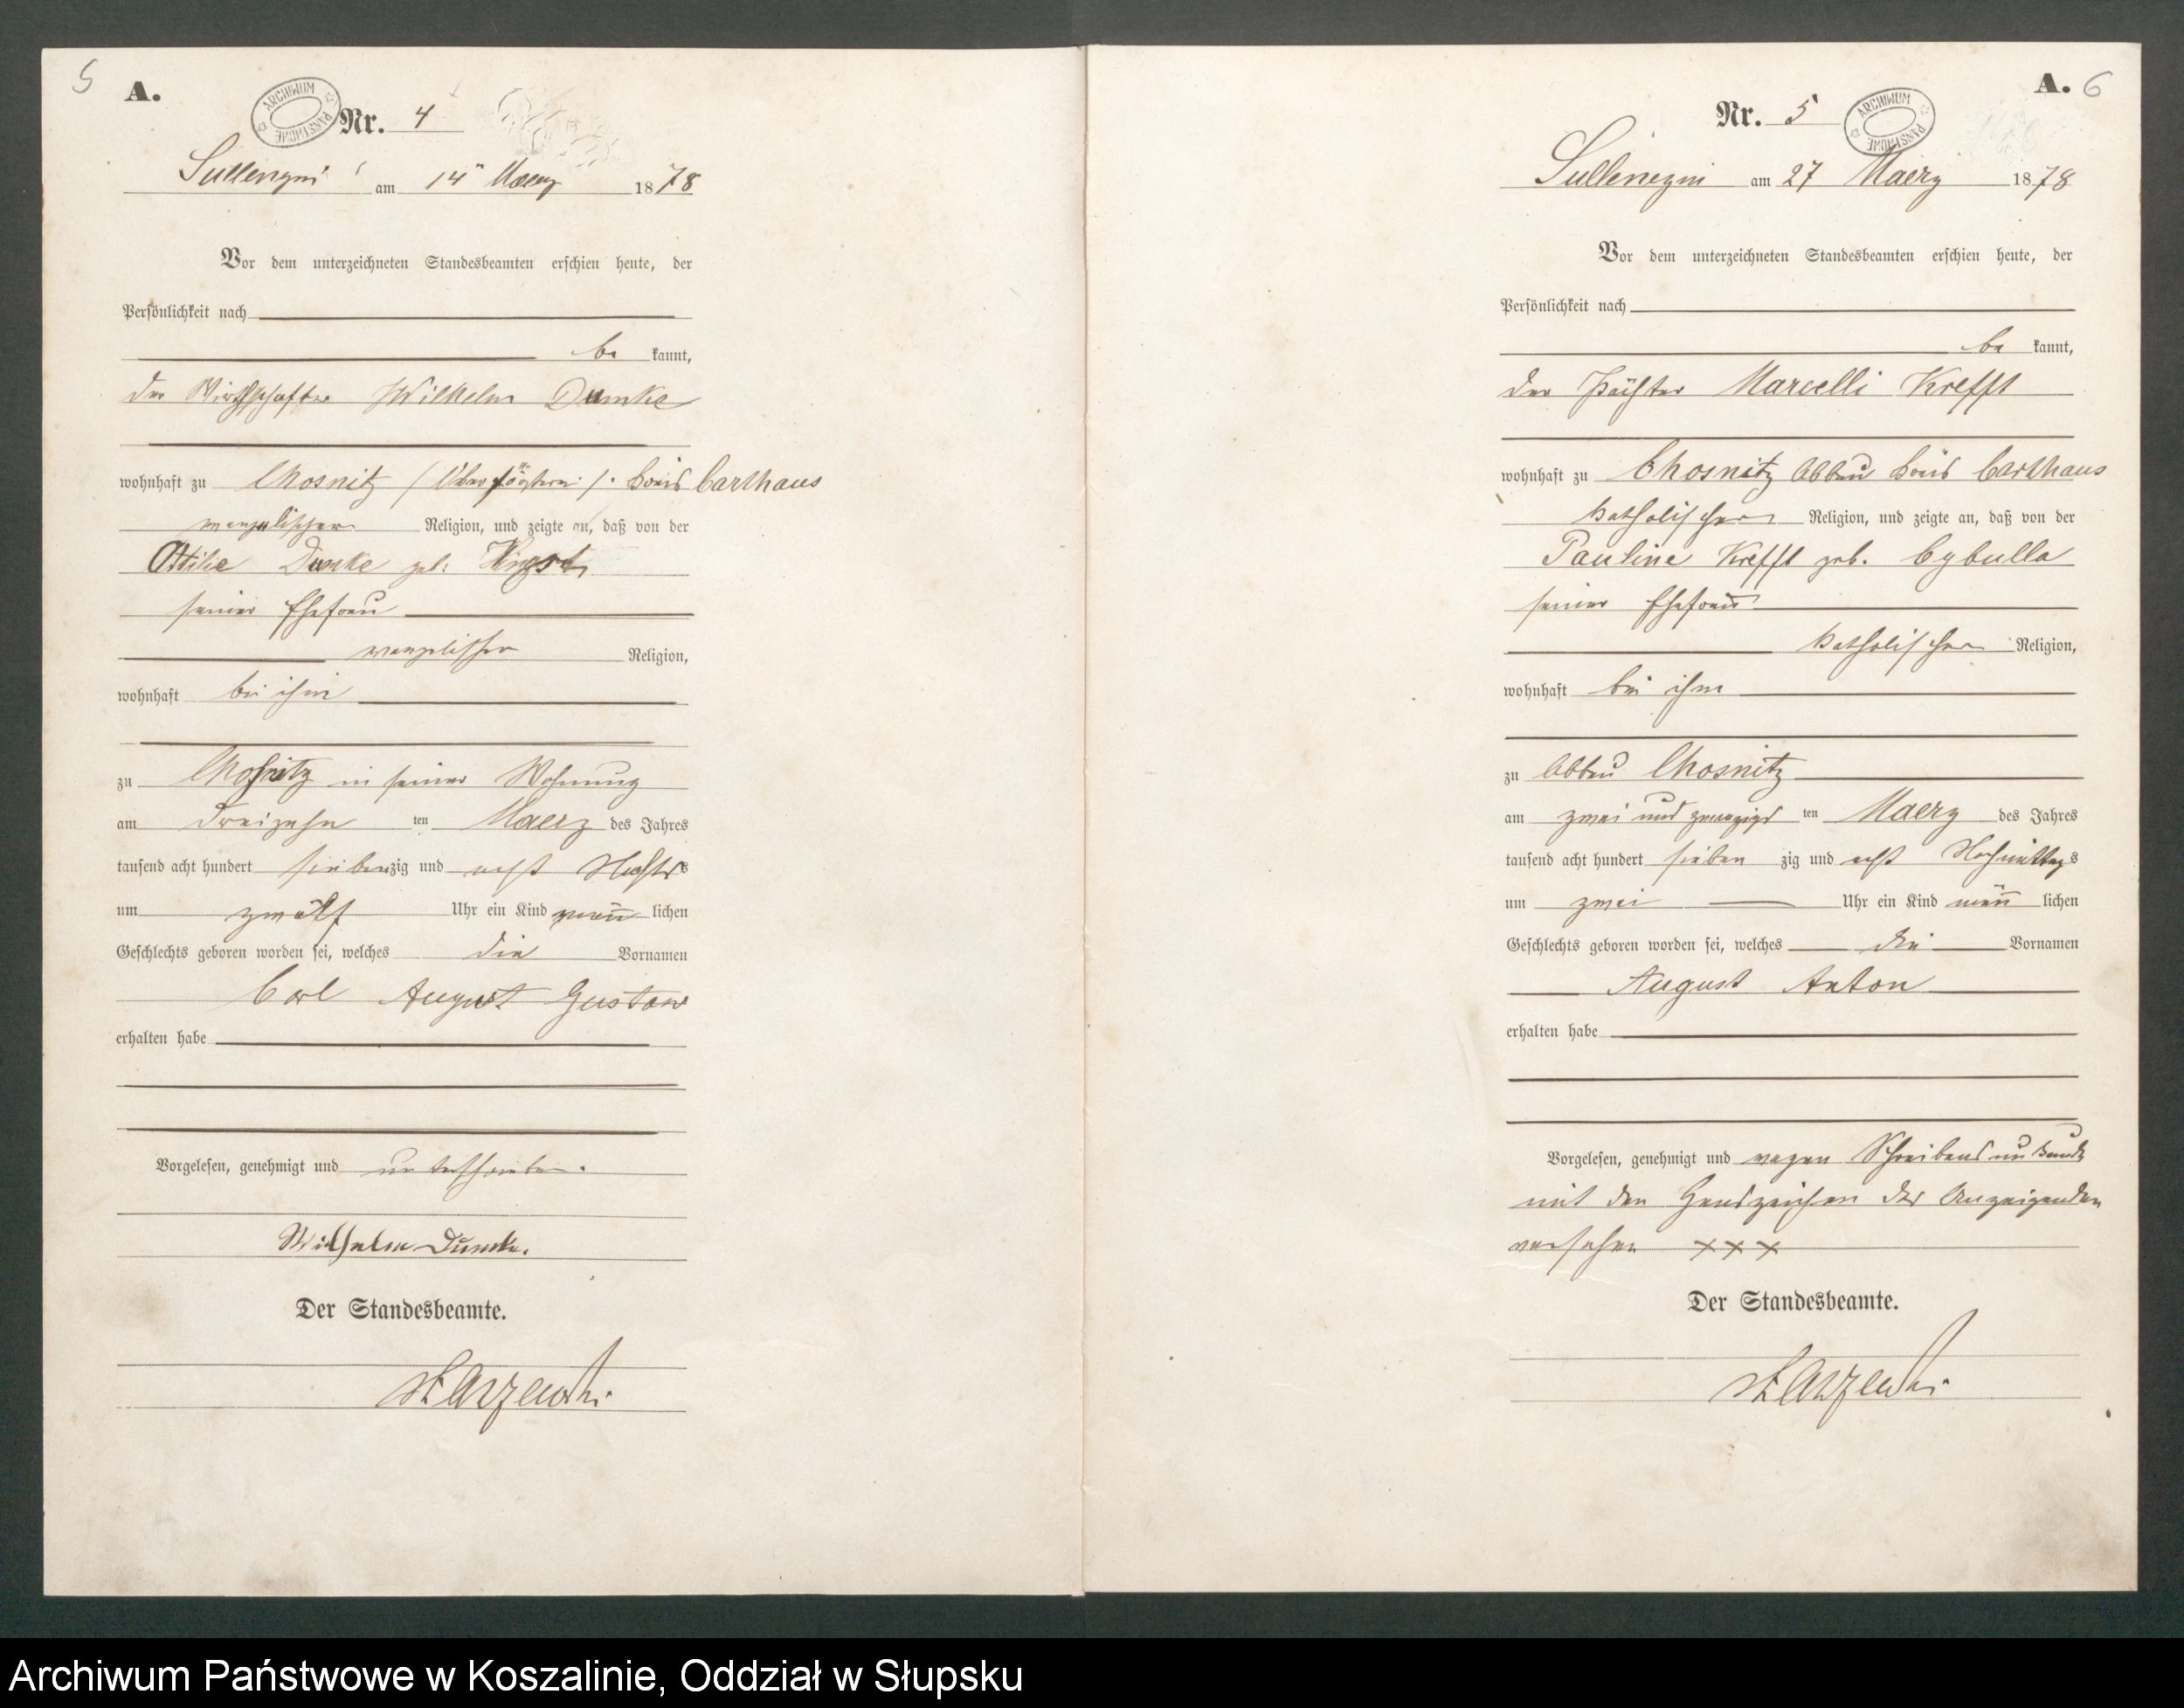 5
A.
ARCHIWUM PAŃSTWOWE
Nr. 4
Sullenczyn am 14 Maerz 1878
Vor dem unterzeichneten Standesbeamten erschien heute, der
Persönlichkeit nach
be kannt,
der Wirthschafter Wilhelm Dumke
wohnhaft zu Chosnitz / Oberförsterei / Kreis Carthaus
evangelischer Religion, und zeigte an, daß von der
Ottilie Dumke geb:
seiner Ehefrau
evangelischer Religion,
wohnhaft bei ihm
zu Chosnitz in seiner Wohnung
am dreizehn ten Maerz des Jahres
tausend acht hundert siebenzig und acht Nachts
um zwölf Uhr ein Kind männ lichen
Geschlechts geboren worden sei, welches die Vornamen
Carl August Gustav
erhalten habe
Vorgelesen, genehmigt und unterschrieben.
Wilhelm Dumke.
Der Standesbeamte.
A. 6
Nr. 5
ARCHIWUM PAŃSTWOWE
Sullenczyn am 27 Maerz 1878
Vor dem unterzeichneten Standesbeamten erschien heute, der
Persönlichkeit nach
be kannt,
der Pächter Marcelli Krefft
wohnhaft zu Chosnitz Abbau Kreis Carthaus
katholischer Religion, und zeigte an, daß von der
Pauline Krefft geb. Cybulla
seiner Ehefrau
katholischer Religion,
wohnhaft bei ihm
zu Abbau Chosnitz
am zwei und zwanzigs ten Maerz des Jahres
tausend acht hundert sieben zig und acht Nachmittags
um zwei Uhr ein Kind männ lichen
Geschlechts geboren worden sei, welches die Vornamen
August Anton
erhalten habe
Vorgelesen, genehmigt und wegen Schreibensunkunde
mit den Handzeichen des Anzeigenden
versehen xxx
Der Standesbeamte.
Archiwum Państwowe w Koszalinie, Oddział w Słupsku